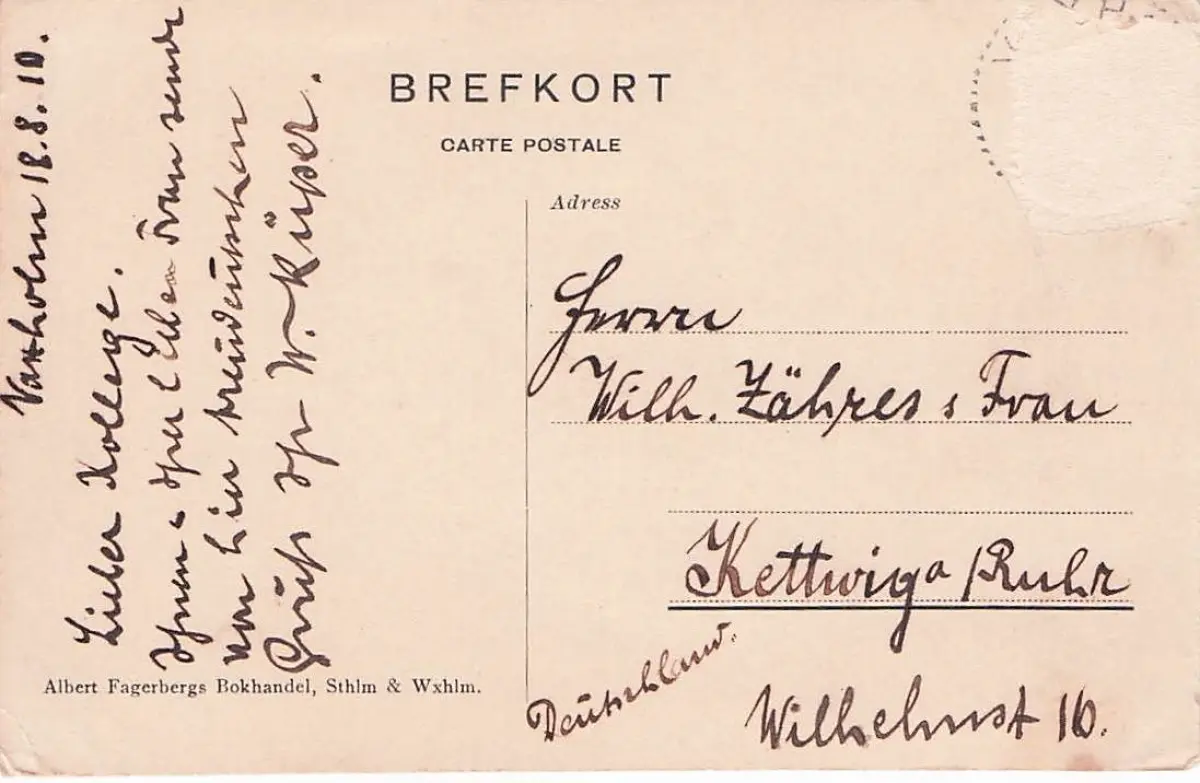 BREFKORT
CARTE POSTALE
Adress
Vaxholm 18.8.10.
Lieber Kollege.
Ihnen u Ihrer lieben Frau sende
von hier treudeutschen
Gruß Ihr W. Küper.
Herrn
Wilh. Zähres u Frau
Kettwig a/Ruhr
Wilhelmst 16.
Deutschland.
Albert Fagerbergs Bokhandel, Sthlm & Wxhlm.